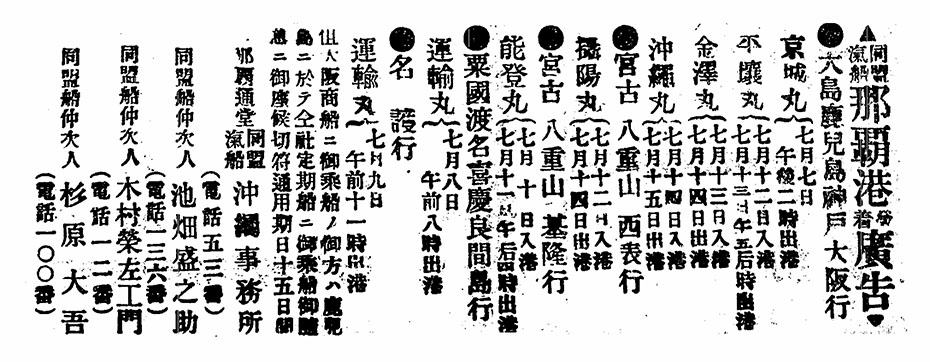 同盟汽船那覇港發着廣告
●大島鹿兒島神戸大阪行
京城丸 七月七日午後二時出港
平壤丸 七月十二日入港 七月十三日午后五時出港
金澤丸 七月十三日入港 七月十四日出港
沖繩丸 七月十四日入港 七月十五日出港
攝陽丸 七月十二日入港 七月十四日出港
●宮古八重山西表行
●宮古八重山基隆行
能登丸 七月十日入港
●粟國渡名喜慶良間島行
運輸丸 七月八日午前八時出港
●名護行
運輸丸 七月九日午前十一時出港
但大阪商船ニ御乘船ノ御方ハ鹿兒
島ニ於テ仝社定期船ニ御乘船御隨
意ニ御座候切符通用期日十五日間
那覇通堂 同盟汽船 沖繩事務所
(電話五三番)
同盟船仲次人 池畑盛之助
(電話一三六番)
同盟船仲次人 木村榮左工門
(電話一二番)
同盟船仲次人 杉原大吾
(電話一〇〇番)